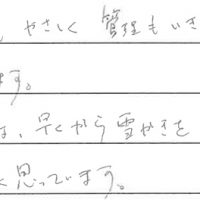 、やさしく 管理もいき
ます。
は、早くから雪かきを
く思っています。